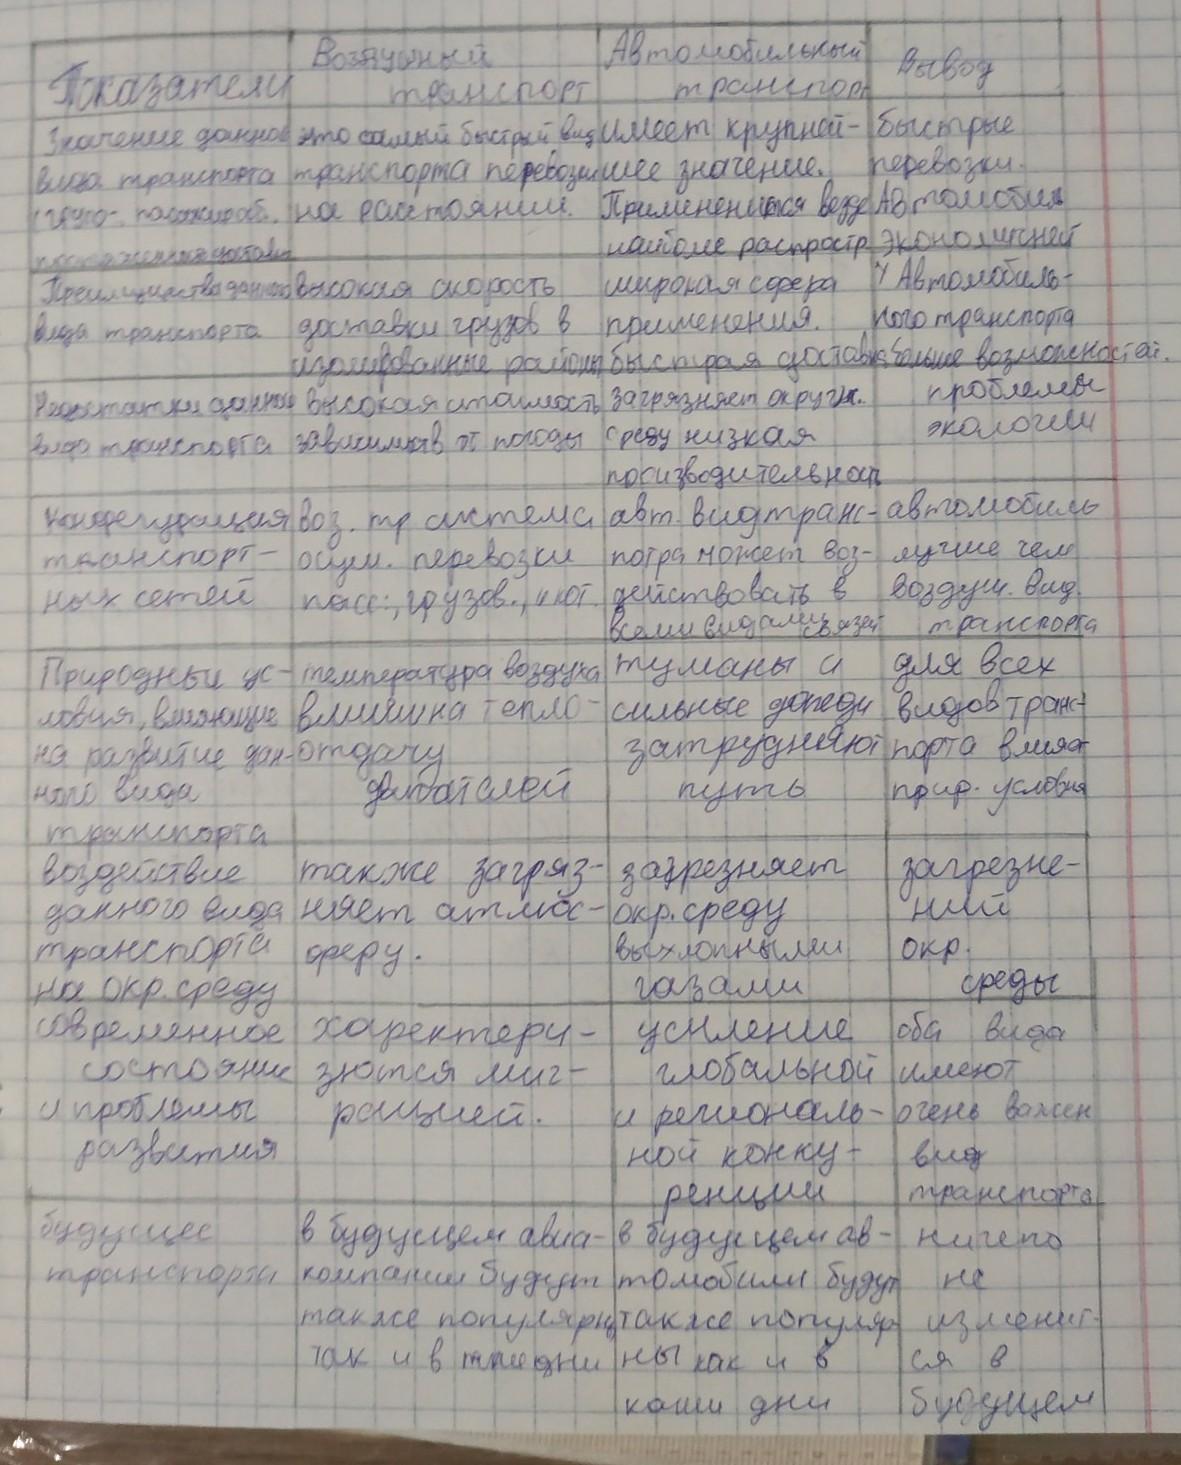 Показатели
Воздушный
транспорт
Автомобильный
транспорт
Вывод
Значение данного
вида транспорта
это самый быстрый вид
транспорта перевозки
на растоянии.
имеет крупней-
шее значение.
Применениться везде
наиболе распростр
быстрые
перевозки.
Автомобиль
экономичней
Преимущества данного
вида транспорта
высокая скорость
доставки грузов в
изолированные районы
широкая сфера
применения.
быстрая доставка
У Автомобиль-
ного транспорта
больше возможностей.
Недостатки данного
вида транспорта
высокая стоимость
от погоды
загрязняет окруж.
среду низкая
производительность
проблемы
экологии
транспорт-
ных сетей
воз. тр система
осущ. перевозки
пасс., грузов.,
авт. вид транс-
может воз-
действовать в
всеми видами связей
автомобиль
лучше чем
воздуш. вид
транспорта
Природные ус-
ловия, влияющие
на развитие дан-
ного вида
транспорта
температура воздуха
тепло-
отдачу
двигателей
туманы и
сильные дожди
затрудняют
путь
для всех
видов транс-
порта влияет
прир. условия
воздействие
данного вида
транспорта
на окр. среду
также загряз-
няет атмос-
феру.
загрезняет
окр. среду
выхлопными
газами
загрезне-
ний
окр.
среды
современное
состояние
и проблемы
развития
характери-
зются миг-
рацией.
усиление
глобальной
и региональ-
ной конку-
ренции
оба вида
имеют
очень важен
вид
транспорта
будущее
транспорта
в будущем авиа-
компании будут
также популярны
так и в дни
в будущем ав-
томобили будут
также популяр
ны как и в
наши дни
ничего
не
изменит-
ся в
будущем